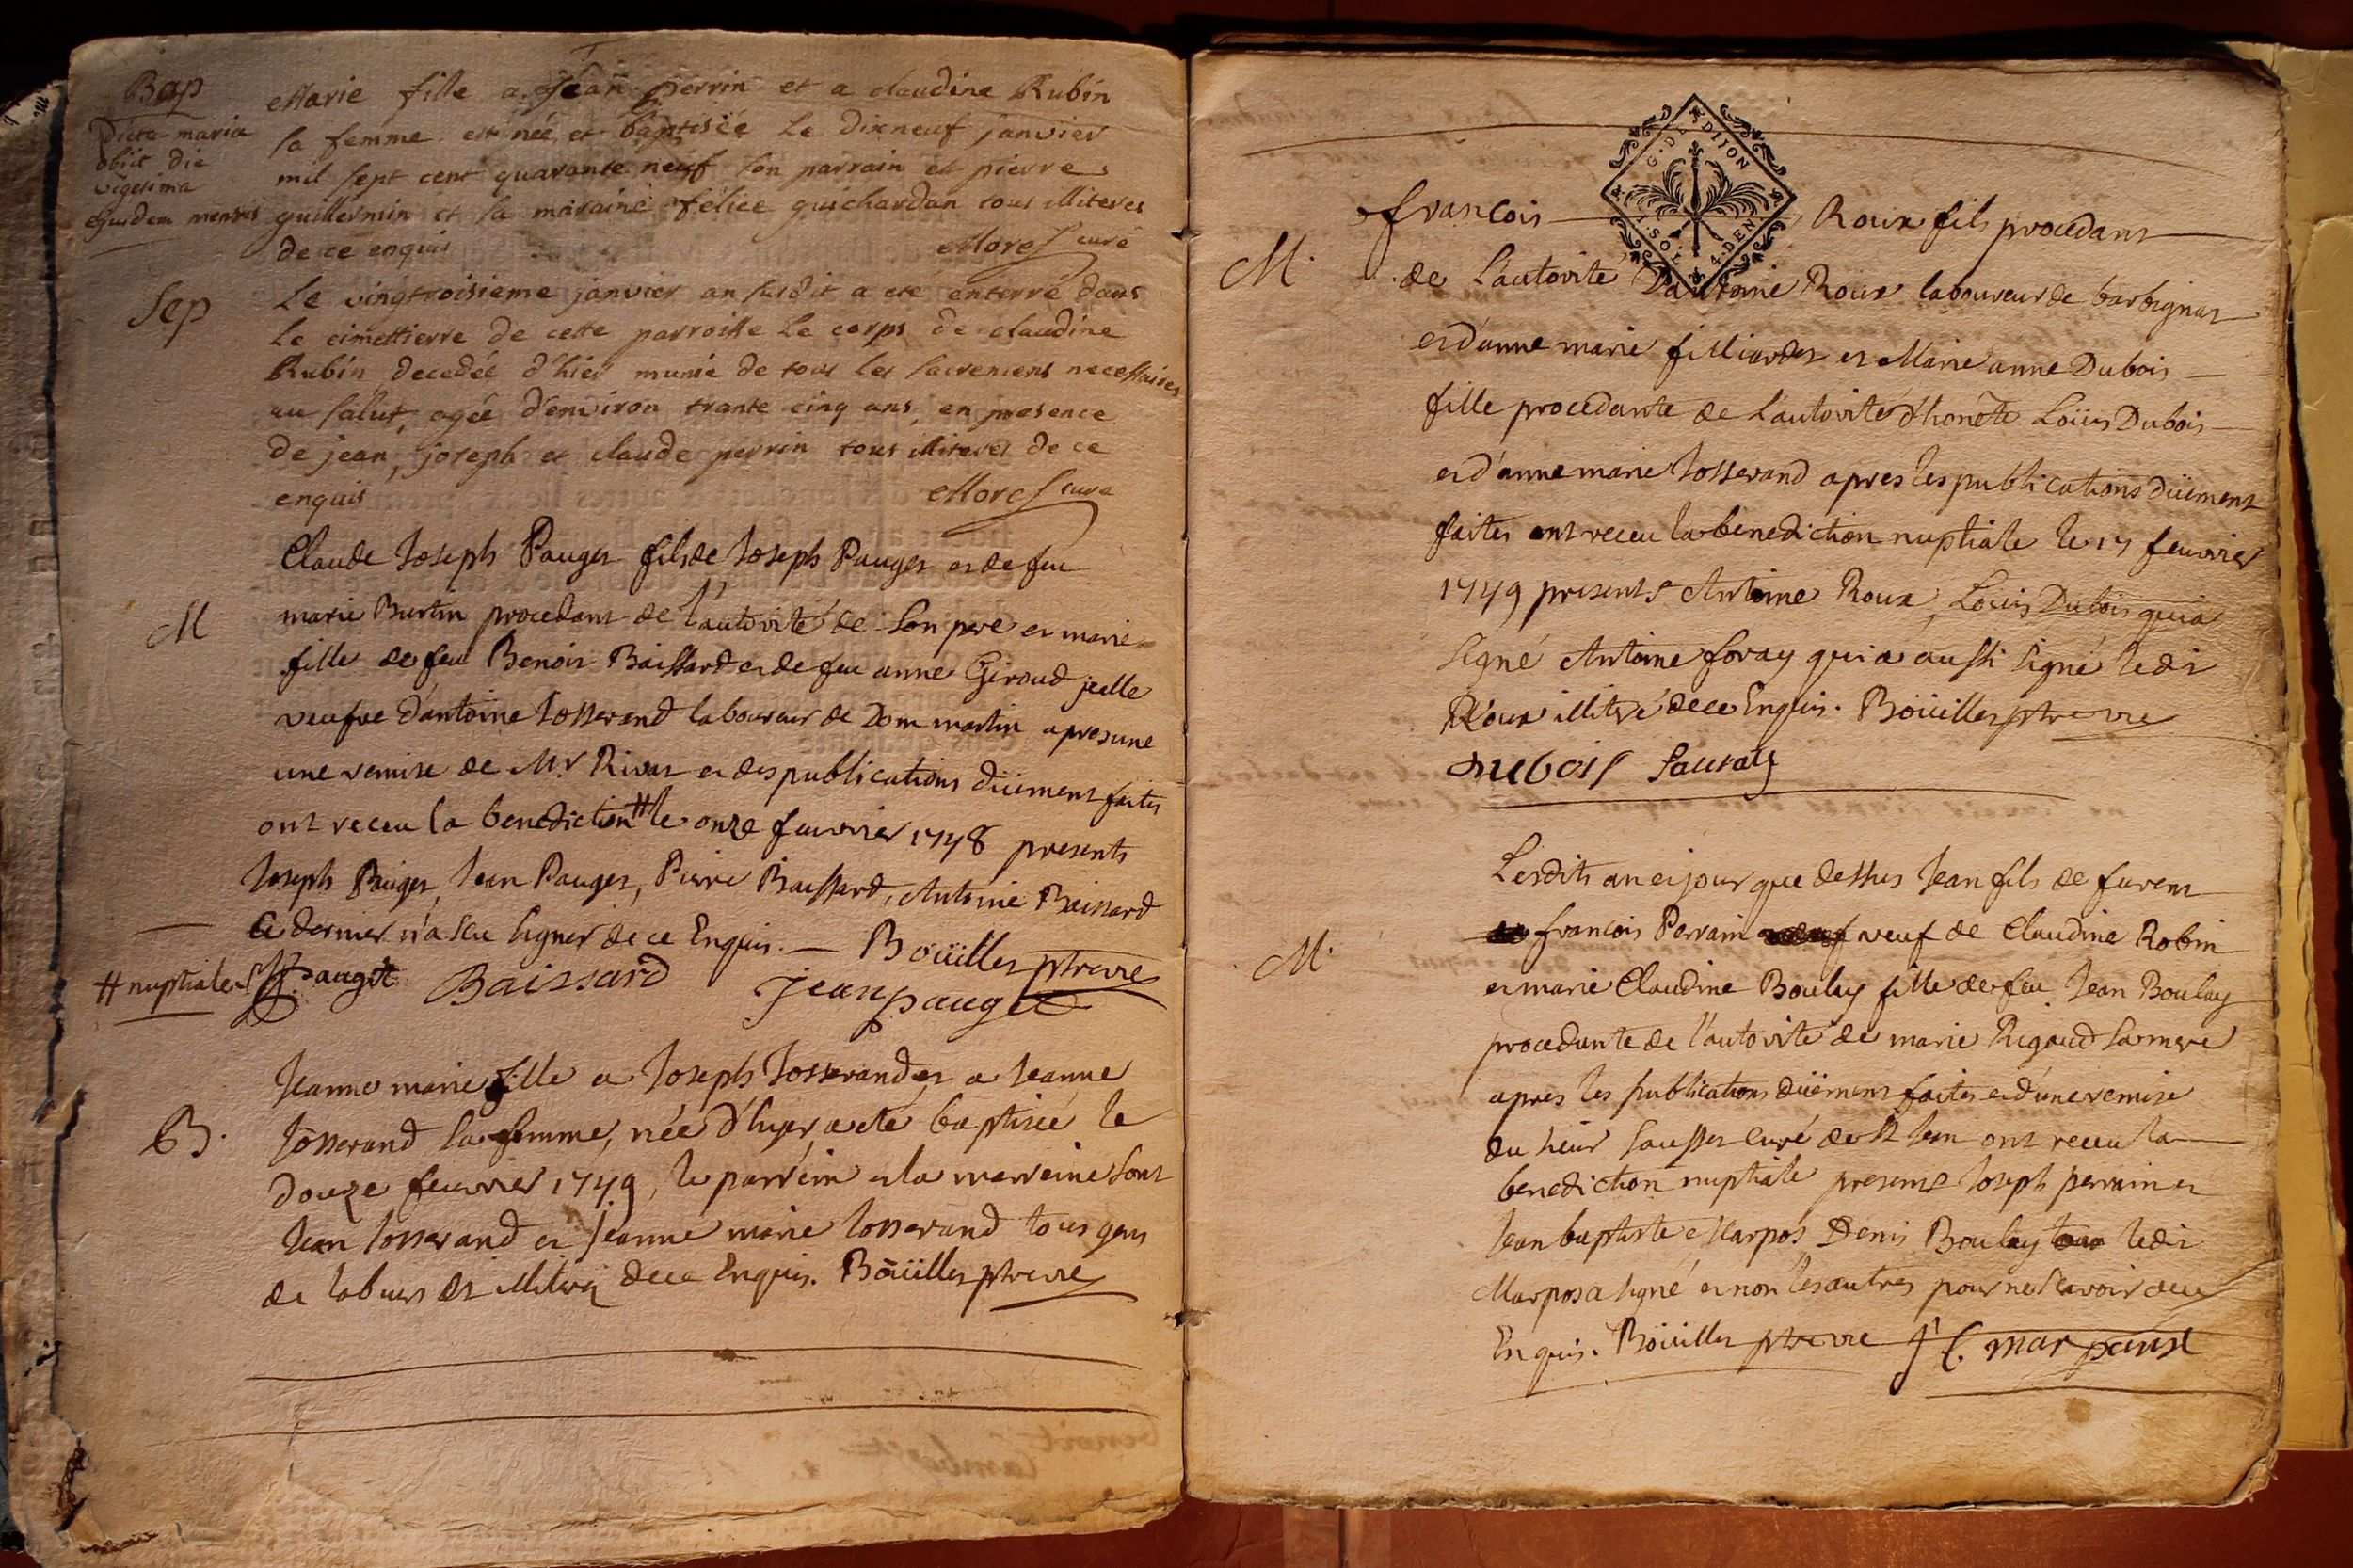 Bap
Dicta maria
obiit die
vigesima
ejusdem mensis
Marie fille a Jean perrin et a claudine Rubin
sa femme est née et baptisée Le dixneuf janvier
mil sept cent quarante neuf son parrain est pierre
guillermin et sa maraine félice guichardan tous illiteres
de ce enquis Morel curé
Sep
Le vingtroisieme janvier an susdit a ete enterré dans
Le cimettierre de cette parroisse Le corps de claudine
Rubin decedée d'hier munie de tous les sacremens necessaires
au salut, agée d'environ trante cinq ans, en presence
de jean, joseph et claude perrin tous illiteres de ce
enquis Morel curé
M
Claude Joseph Pauget fils de Joseph Pauget et de feu
marie Burtin procedant de l'autorité de son pere et marie
fille de feu Benoit Baissard et de feu anne Giroud jcelle
veufve d'antoine Josserand laboureur de Dommartin apres une
une remise de Mr Rivat et des publications düement faites
ont receu la benediction # le onze feuvrier 1748 presents
Joseph Pauget, Jean Pauget, Pierre Baissard, Antoine Baissard
Ce dernier n'a sceu signer de ce Enquis. — Boüillet ptre vre
# nuptiale
J Paugét Baissard jean pauget
B.
Jeanne marie fille a Joseph Josserand et a Jeanne
Josserand sa femme, née d'hyer a eté baptisée le
douze feuvrier 1749, le parrein et la marreine sont
Jean Josserand et Jeanne marie Josserand tous gens
de labeurs et illiterés de ce Enquis. Boüillet ptre vre
G. DE DIJON
1. SOL. 4. DEN.
M.
francois Roux fils procedant
de L'autorité D'antoine Roux laboureur de barbignat
et d'anne marie filliardet et Marie anne Dubois
fille procedante de L'autorité d'honête Loüis Dubois
et d'anne marie Josserand apres les publications düement
faites ont receu la benediction nuptiale le 17 feuvrier
1749 presents Antoine Roux, Loüis Dubois qui a
signé Antoine foray qui a aussi signé ledit
Roux illitéré de ce Enquis. Boüillet ptre vre
Dubois
M.
Lesdits an et jour que dessus Jean fils de furent
francois Perrain veuf de Claudine Robin
et marie Claudine Boulay fille de feu Jean Boulay
procedante de l'autorité de marie Rigaud sa mere
apres les publications düement faites et d'une remise
du sieur Sausset curé de St Jean ont receu la
benediction nuptiale presents Joseph perrain et
Jean baptiste Marpos Denis Boulay ledit
Marpos a signé et non les autres pour ne scavoir de ce
Enquis. Boüillet ptre vre